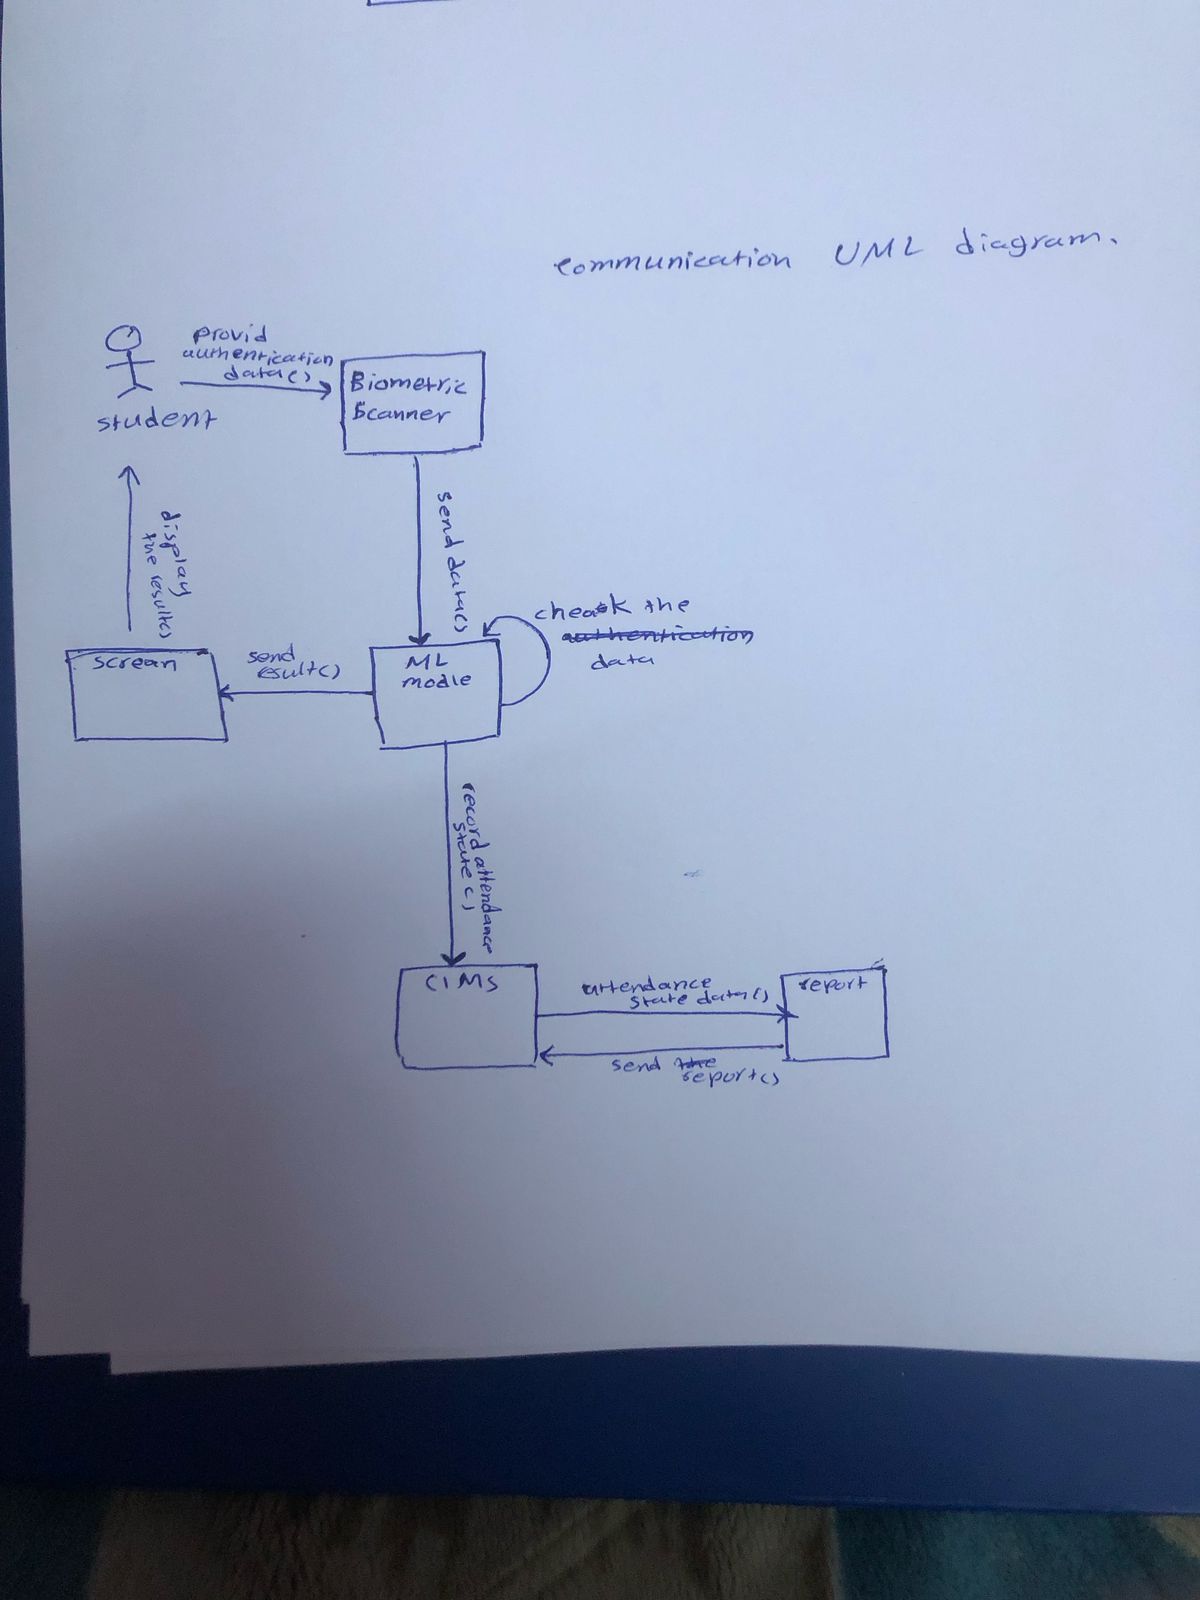 communication UML diagram.
provid
authentication
data()
student
Biometric
Scanner
send data()
display
the result()
cheack the
authentication
data
screan
send
result()
ML
modle
record attendance
state()
CIMS
attendance
state data()
report
send the
report()